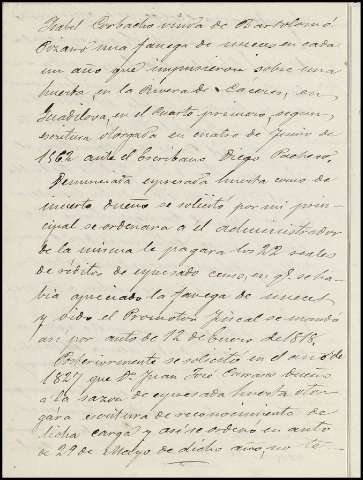 Isabel Corbacho viuda de Bartolomé
Pozano una fanega de nueces en cada
un año que impusieron sobre una
huerta, en la Rivera de Caceres, en
Guadilova, en el cuarto primero, segun
escritura otorgada en cuatro de Junio de
1562 ante el Escribano Diego Pacheco,
Denunciada espresada huerta como de
incierto dueño se solicitó por mi prin-
cipal se ordenara a el administrador
de la misma le pagara los 22 reales
de réditos de espresado censo, en q.e se ha-
bia apreciado la fanega de nueces,
y oido el Promotor Fiscal se mandó
asi por auto de 12 de Enero de 1818.
Posteriormente se solicitó en el año de
1827 que D. Juan José Carrasco dueño
a la sazon de espresada huerta otor-
gara escritura de reconocimiento de
dicha carga y asi se ordenó en auto
de 29 de Mayo de dicho año, no te-